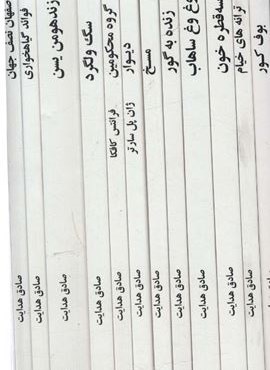 بوف کور
ترانه های خیام صادق هدایت
سه قطره خون صادق هدایت
وغ ساهاب صادق هدایت
زنده به گور صادق هدایت
مسخ صادق هدایت
دیوار ژان پل سارتر صادق هدایت
گروه محکومین فرانتس کافکا صادق هدایت
سگ ولگرد صادق هدایت
زند هومن یسن صادق هدایت
فواید گیاهخواری صادق هدایت
اصفهان نصف جهان صادق هدایت